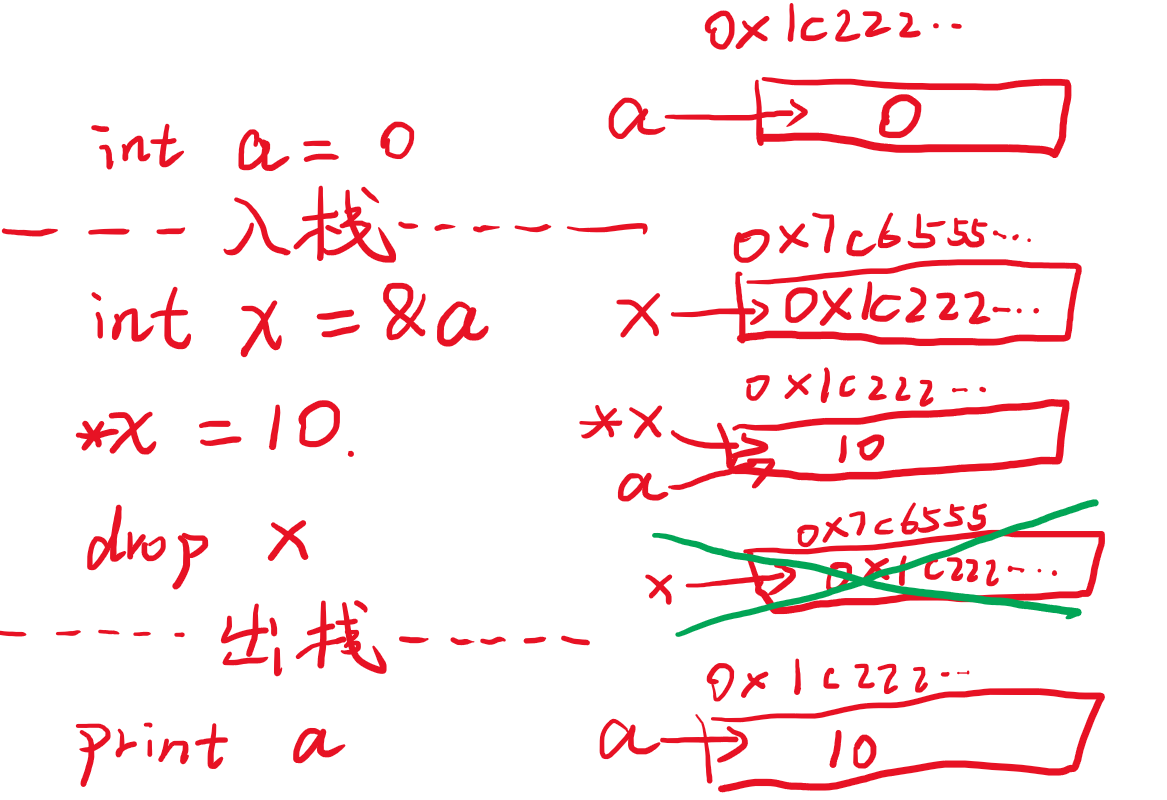 0x1c222..
a 0
int a = 0
入栈
0x7c6555...
int x = &a
x 0x1c222...
0x1c222...
*x = 10.
*x 10
a
0x7c6555
drop x
x 0x1c222...
出栈
0x1c222...
print a
a 10